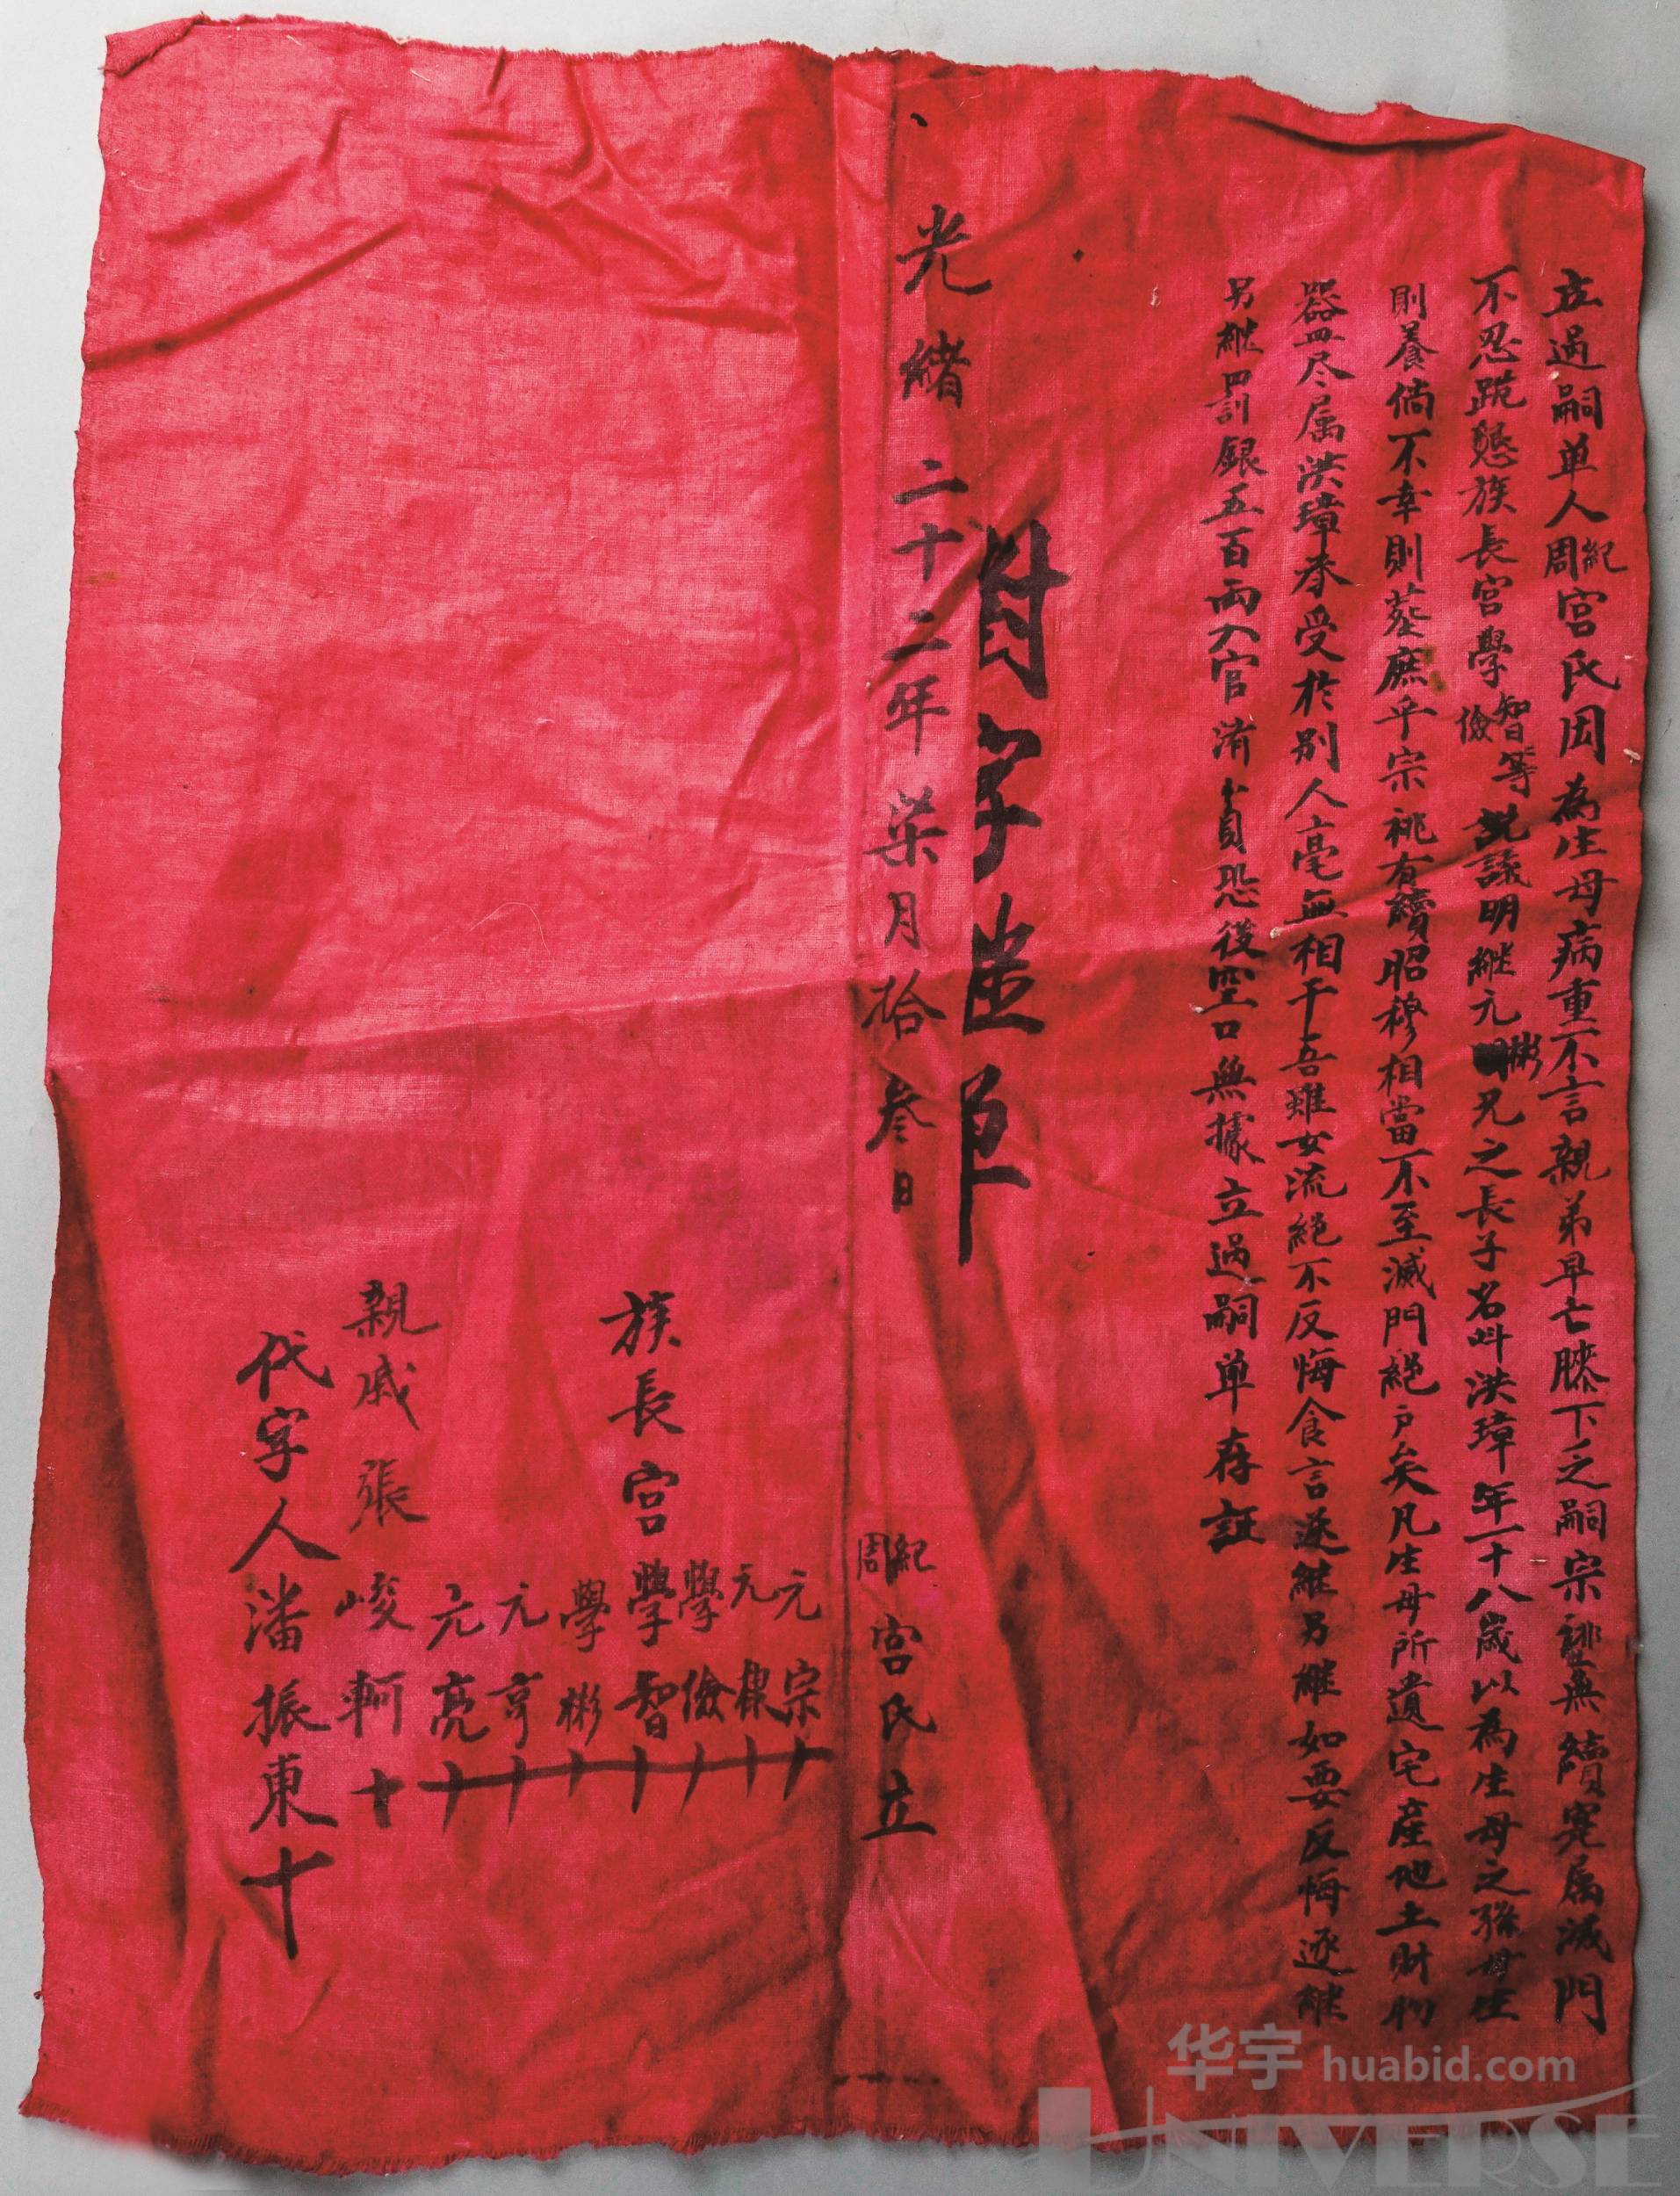 立過嗣单人紀周宮氏因為生母病重不言親弟早亡膝下乏嗣宗祧無續寃属滅門
不忍跪懇族長宮學智儉等説議明継元彬兄之長子名叫洪璋年一十八歳以為生母之孫母生
則養倘不幸則葬庶乎宗祧有續昭穆相當不至滅門絕户矣凡生母所遺宅產地土財物
器皿尽属洪璋奉受於別人毫無相干吾雖女流絕不反悔食言逐継另継如要反悔逐継
另継罰銀五百兩入官濟貧恐後空口無據立過嗣单存証
光緒二十二年柒月拾叁日
紀周宮氏立
族長宮
元宗
元棣
學儉
學智
學彬
元亨
元亮
親戚張峻軻十
代字人潘振東十
华宇 huabid.com
UNIVERSE